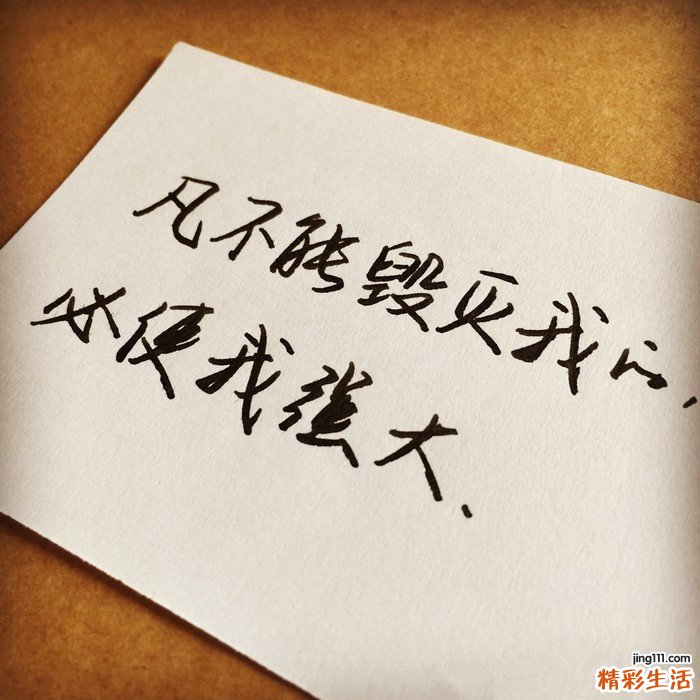 凡不能毁灭我的,
必使我强大.
jing111.com
精彩生活